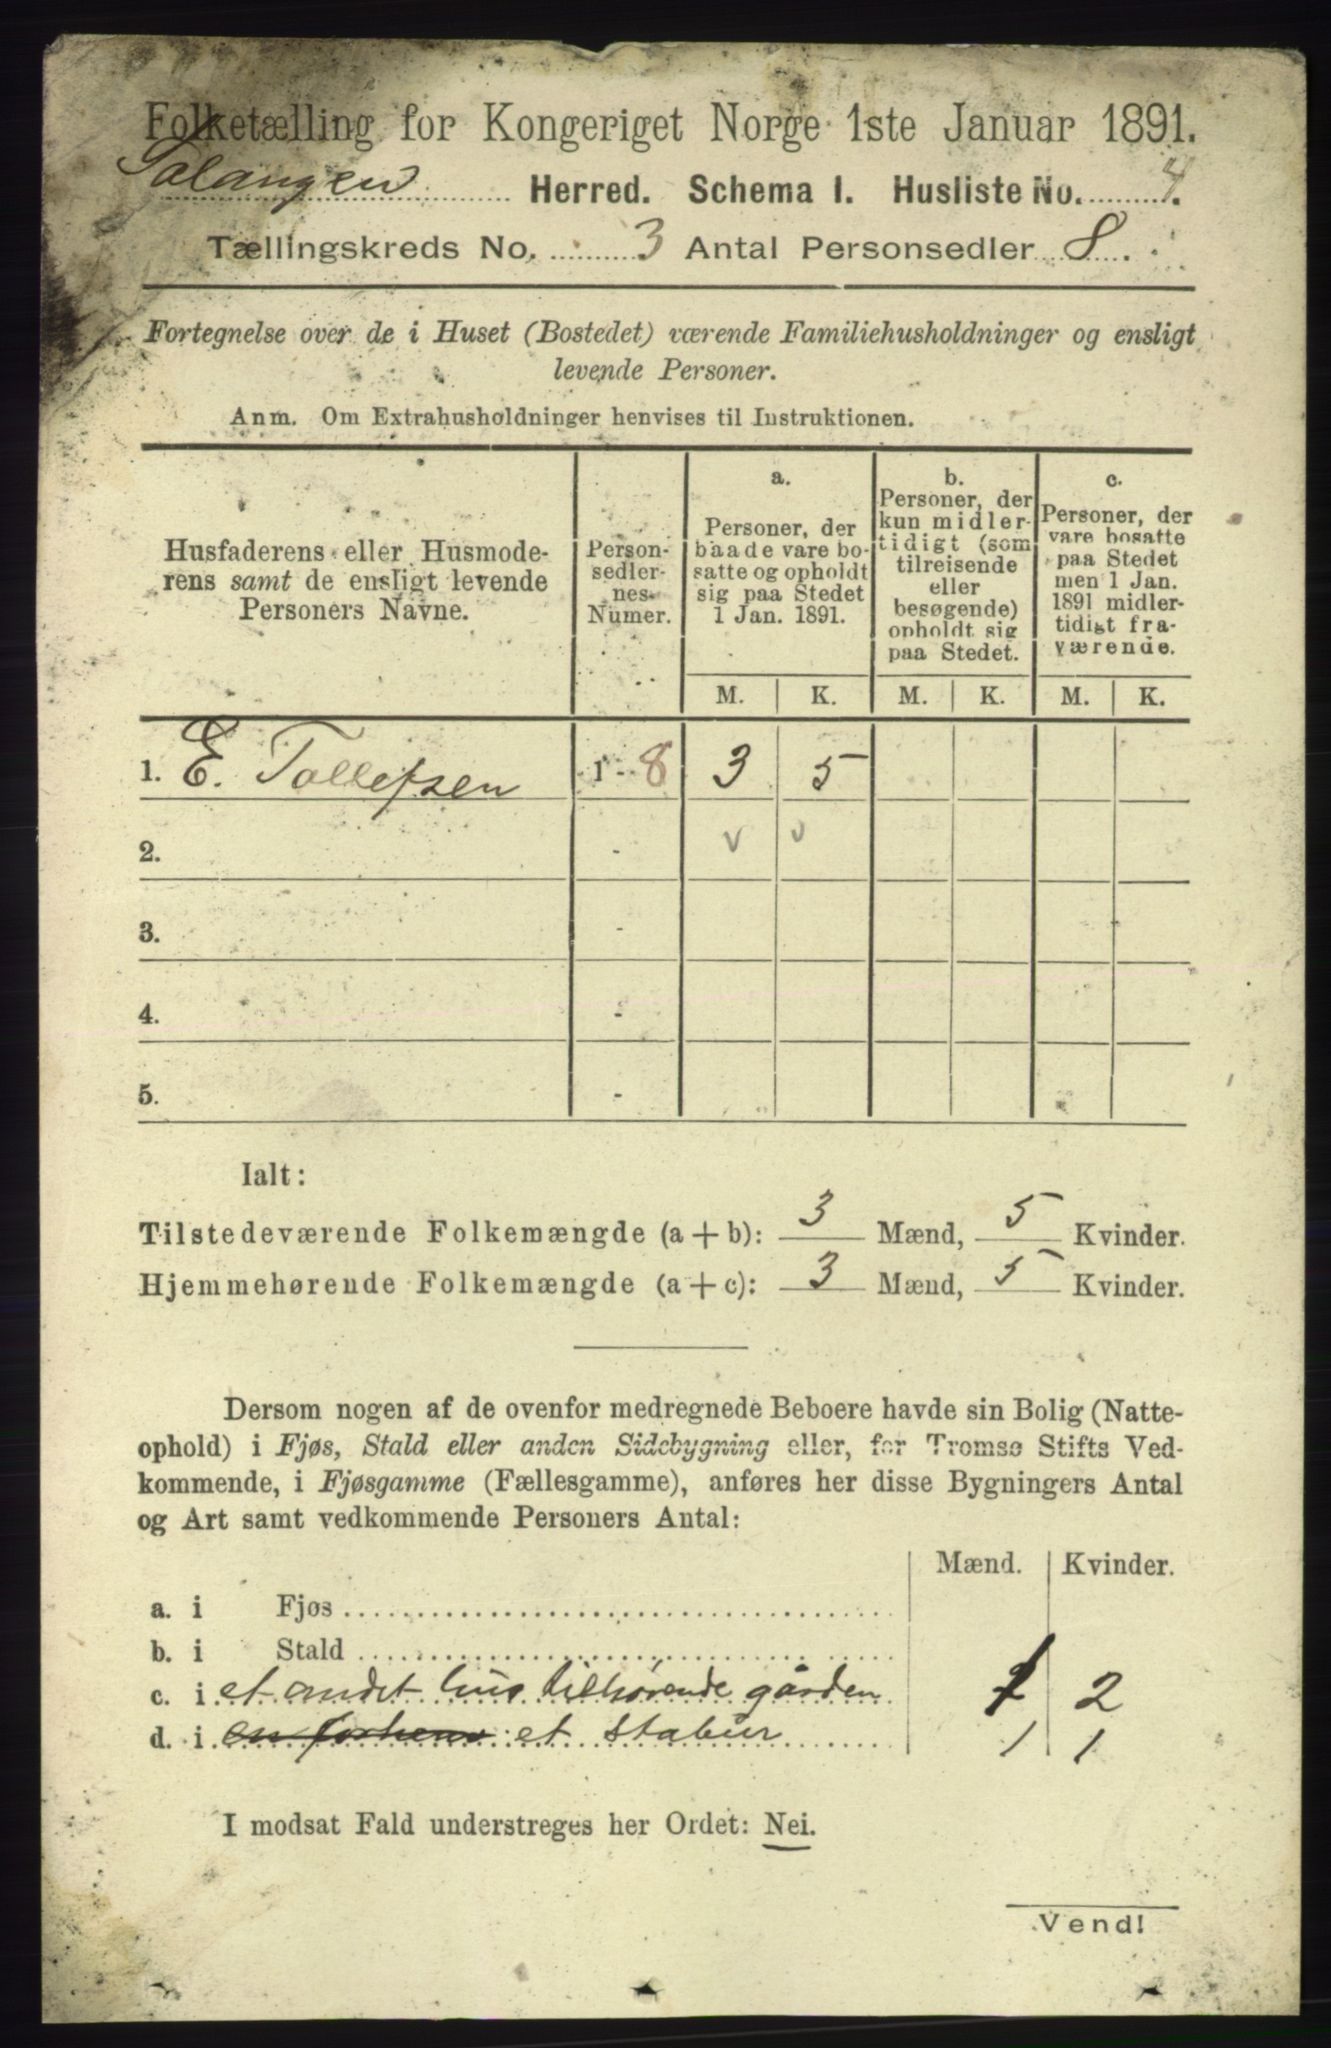 Folketælling for Kongeriget Norge 1ste Januar 1891.
Salangen Herred. Schema I. Husliste No. 4.
Tællingskreds No. 3 Antal Personsedler 8.
Fortegnelse over de i Huset (Bostedet) værende Familiehusholdninger og ensligt
levende Personer.
Anm. Om Extrahusholdninger henvises til Instruktionen.
Husfaderens eller Husmode-
rens samt de ensligt levende
Personers Navne.
Person-
sedler-
nes
Numer.
a.
Personer, der
baade vare bo-
satte og opholdt
sig paa Stedet
1 Jan. 1891.
b.
Personer, der
kun midler-
tidigt (som
tilreisende
eller
besøgende)
opholdt sig
paa Stedet.
c.
Personer, der
vare bosatte
paa Stedet
men 1 Jan.
1891 midler-
tidigt fra-
værende.
M. K. M. K. M. K.
1. E. Tollefsen 1 - 8 3 5
2. - v v
3. -
4. -
5. -
Ialt:
Tilstedeværende Folkemængde (a + b): 3 Mænd, 5 Kvinder.
Hjemmehørende Folkemængde (a + c): 3 Mænd, 5 Kvinder.
Dersom nogen af de ovenfor medregnede Beboere havde sin Bolig (Natte-
ophold) i Fjøs, Stald eller anden Sidebygning eller, for Tromsø Stifts Ved-
kommende, i Fjøsgamme (Fællesgamme), anføres her disse Bygningers Antal
og Art samt vedkommende Personers Antal:
Mænd. Kvinder.
a. i Fjøs
b. i Stald
c. i et andet hus tilhørende gården 2
d. i et stabur 1 1
I modsat Fald understreges her Ordet: Nei.
Vend!